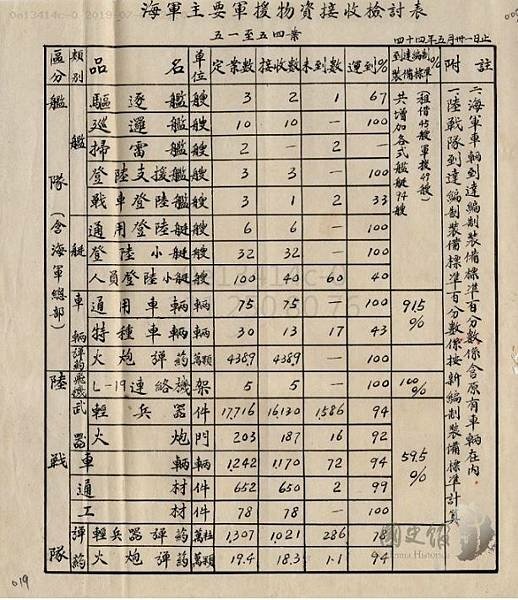 海軍主要軍援物資接收檢討表
五一至五四案
四十四年五月卅一日止
區分 類別 品名 單位 定案數 接收數 未到數 運到% 到達編制裝備標準% 附註
艦隊(含海軍總部) 艦艇 驅逐艦 艘 3 2 1 67 共增加各式艦艇94艘(租借45艘軍援49艘)
巡邏艦 艘 10 10 — 100
掃雷艦 艘 2 — 2 —
登陸支援艦 艘 3 3 — 100
戰車登陸艦 艘 3 1 2 33
通用登陸艇 艘 6 6 — 100
登陸小艇 艘 32 32 — 100
人員登陸小艇 艘 100 40 60 40
車輛 通用車輛 輛 75 75 — 100 91.5%
特種車輛 輛 30 13 17 43
彈藥 火炮彈藥 萬顆 438.9 438.9 — 100
陸戰隊 飛機 L-19連絡機 架 5 5 — 100 100%
武器 輕兵器 件 17,716 16,130 1,586 94 59.5%
火炮 門 203 187 16 92
車輛 輛 1,242 1,170 72 94
通材 件 652 650 2 99
工材 件 78 78 — 100
彈藥 輕兵器彈藥 萬粒 1,307 1,021 286 78
火炮彈藥 萬顆 19.4 18.3 1.1 94
一、陸戰隊到達編制裝備標準百分數係按新編制裝備標準計算
二、海軍車輛到達編制裝備標準百分數係含原有車輛在內
019
國史館